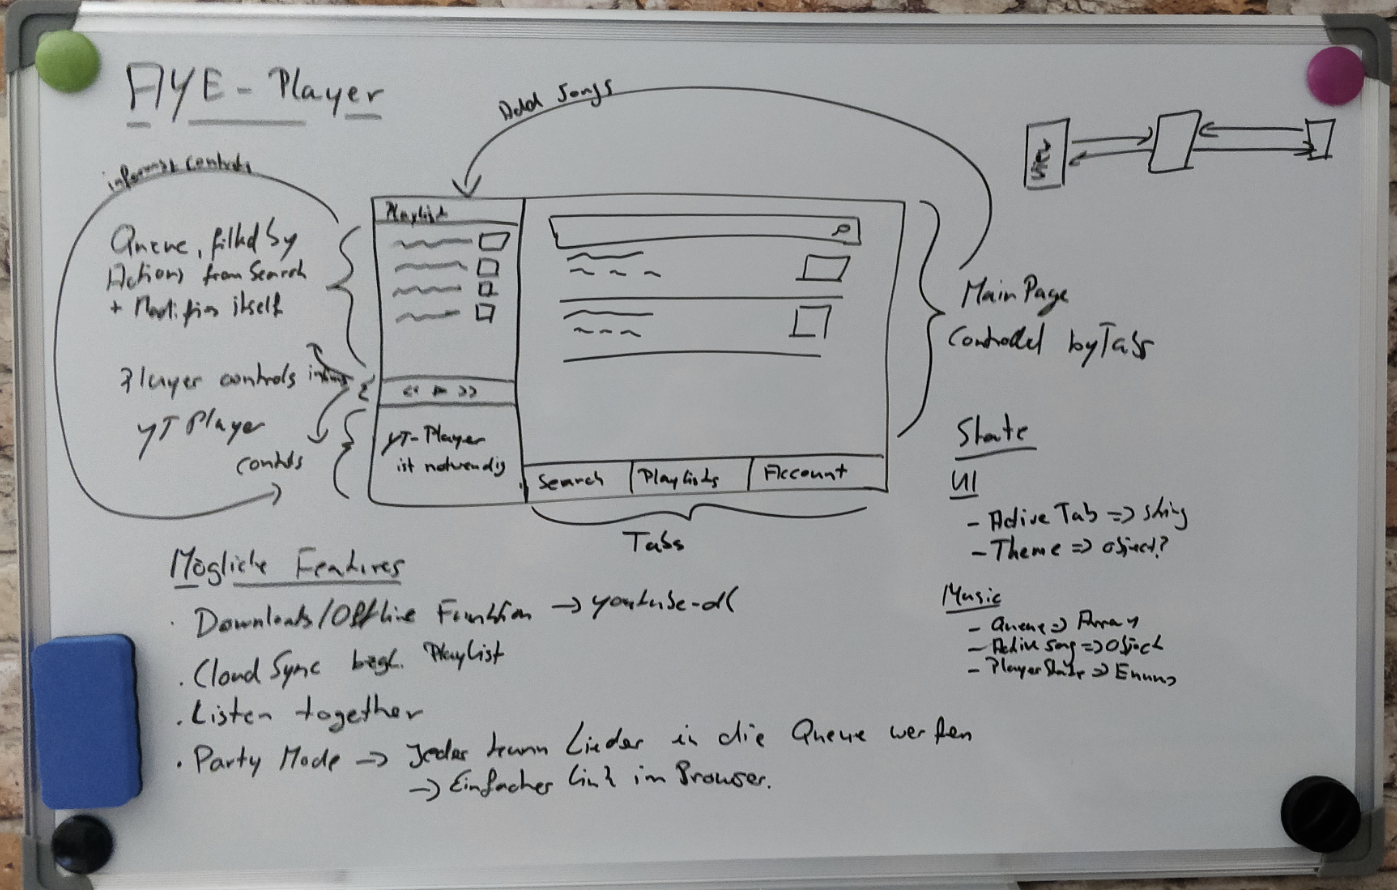 AYE-Player
Add Songs
informs controls
Queue, filled by
Actions from Search
+ Modifies itself
Player controls
YT Player
controls
Playlist
<< >>
YT-Player
ist notwendig
Search
Playlists
Account
Tabs
Main Page
Controlled by Tabs
State
UI
- Active Tab => string
- Theme => object?
Music
- Queue => Array
- Active Song => Object
- Player State => Enum
Mögliche Features
· Downloads/Offline Funktion -> youtube-dl
· Cloud Sync bzgl. Playlist
· Listen together
· Party Mode -> Jeder kann Lieder in die Queue werfen
-> Einfacher Link im Browser.